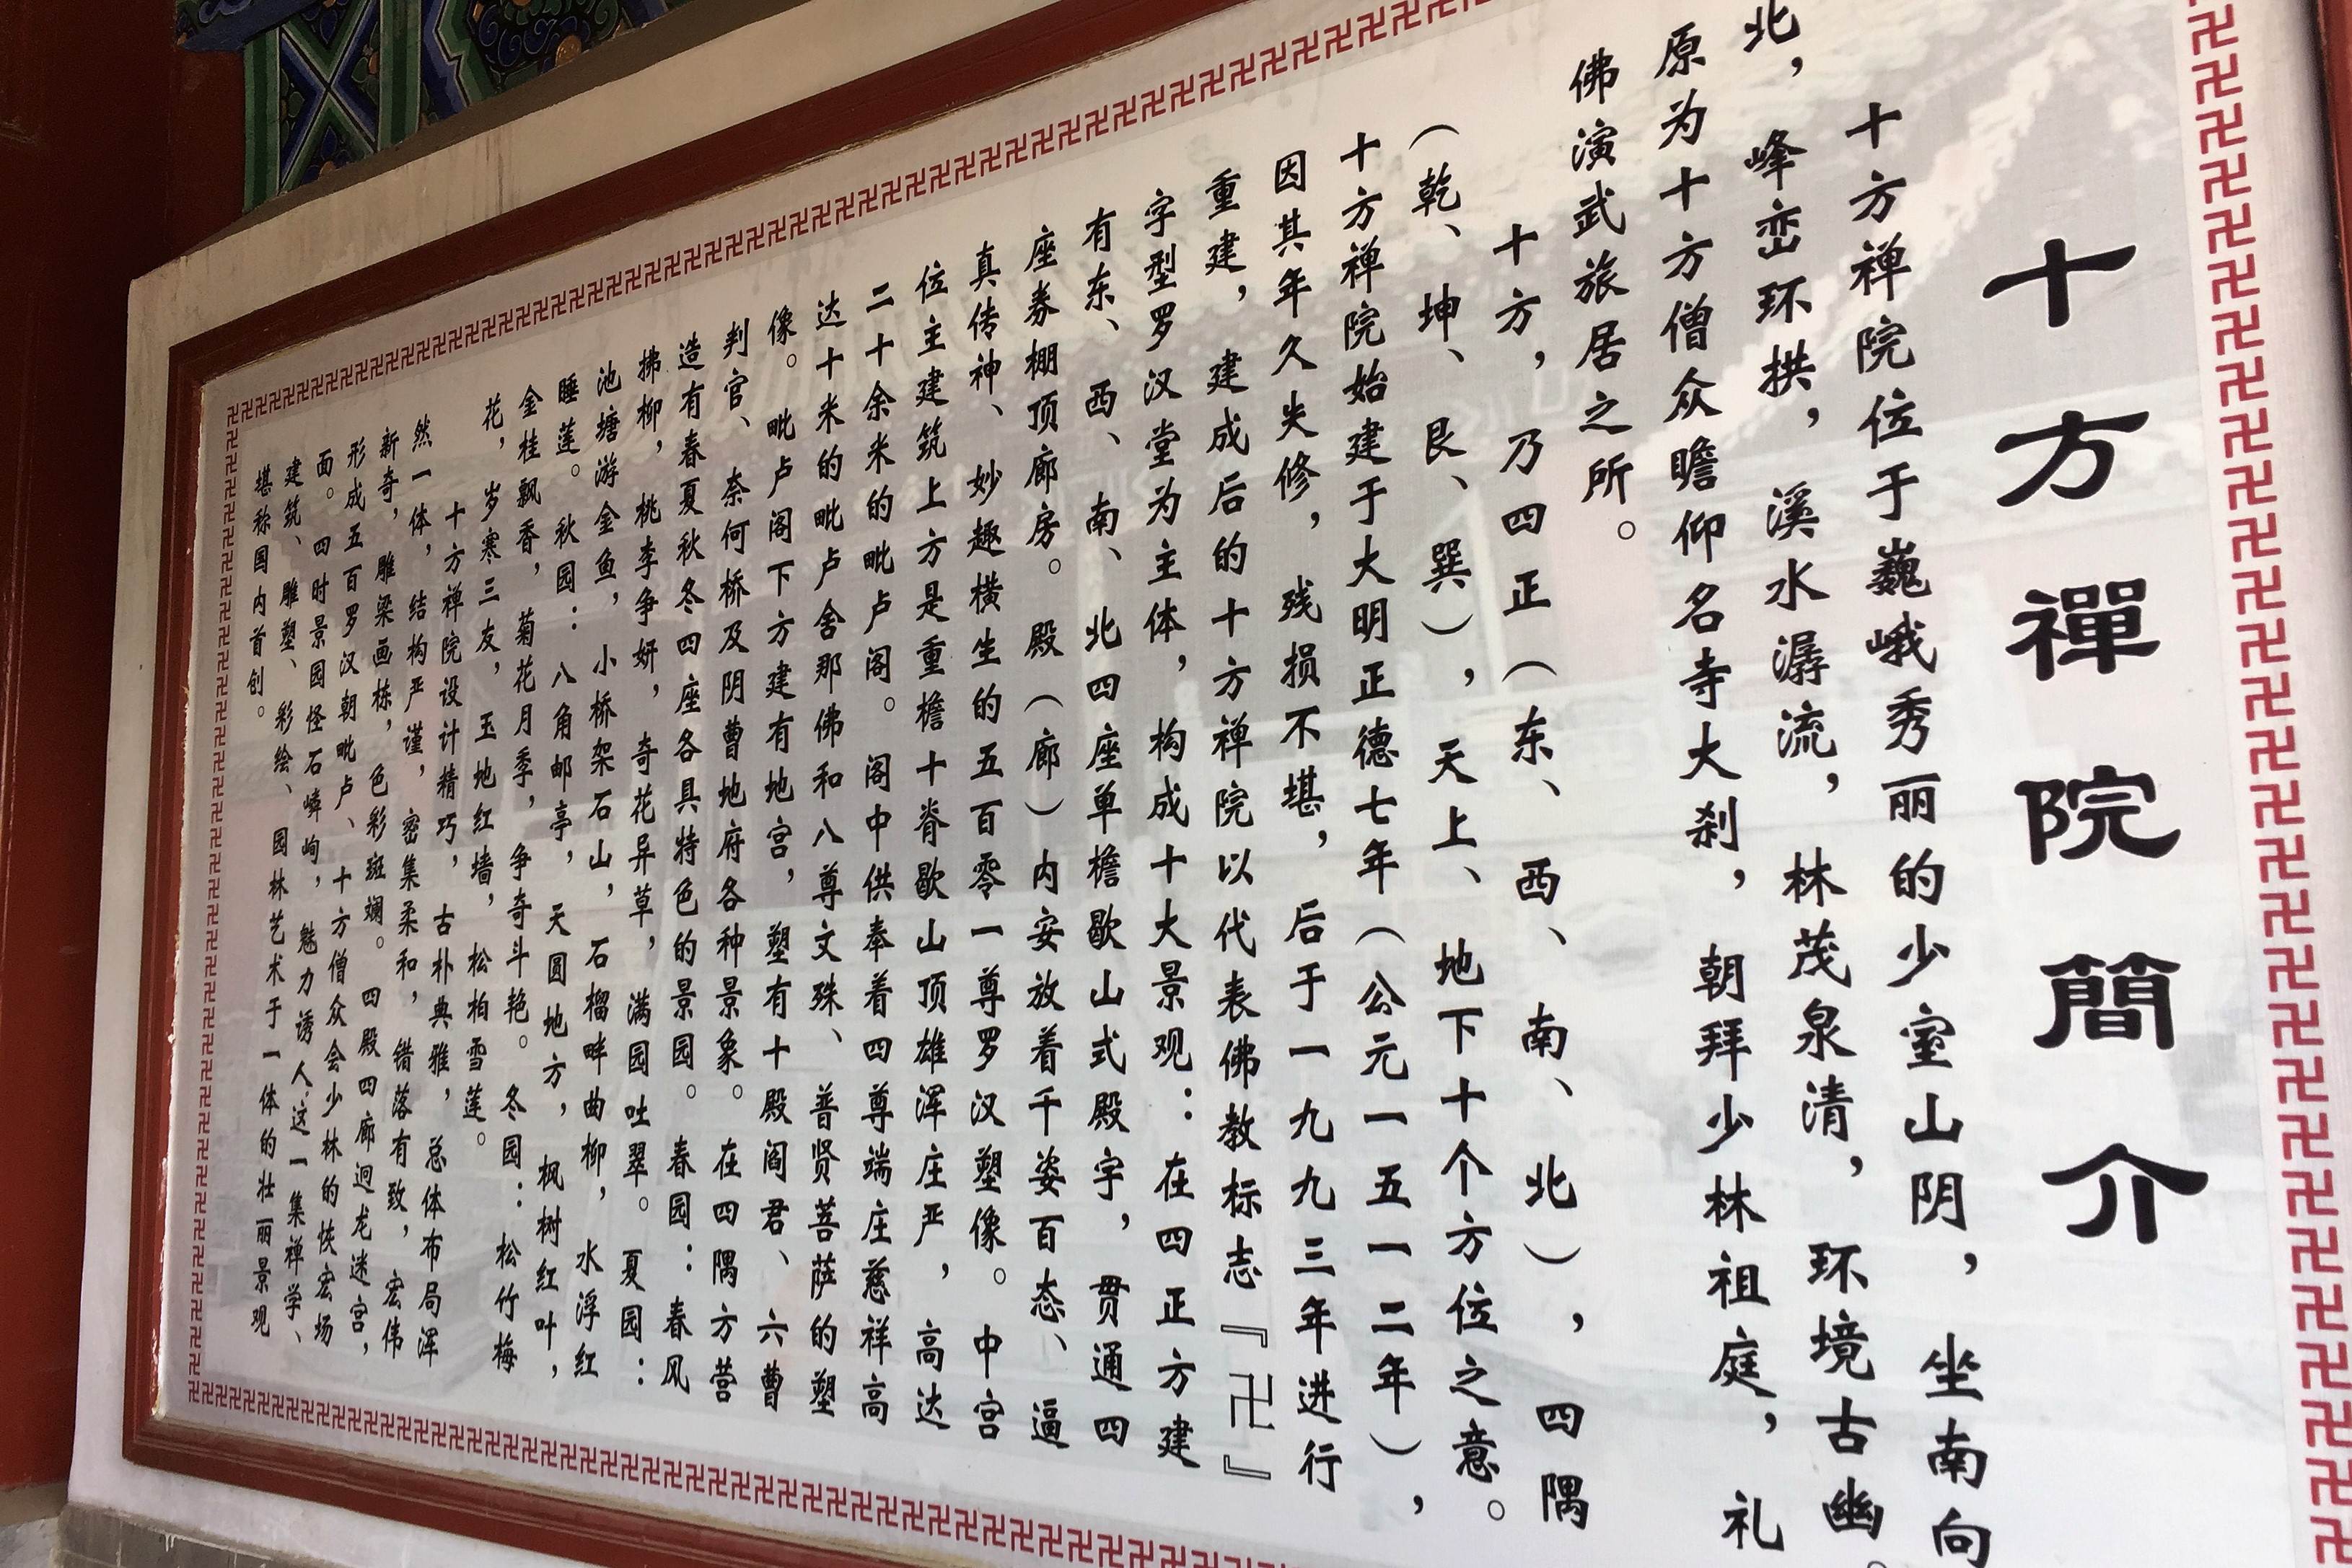 十方禪院簡介
十方禅院位于巍峨秀丽的少室山阴，坐南向
北，峰峦环拱，溪水潺流，林茂泉清，环境古幽。
原为十方僧众瞻仰名寺大刹，朝拜少林祖庭，礼
佛演武旅居之所。
十方，乃四正（东、西、南、北），四隅
（乾、坤、艮、巽），天上、地下十个方位之意。
十方禅院始建于大明正德七年（公元一五一二年），
因其年久失修，残损不堪，后于一九九三年进行
重建，建成后的十方禅院以代表佛教标志『卍』
字型罗汉堂为主体，构成十大景观：在四正方建
有东、西、南、北四座单檐歇山式殿宇，贯通四
座券棚顶廊房。殿（廊）内安放着千姿百态、逼
真传神、妙趣横生的五百零一尊罗汉塑像。中宫
位主建筑上方是重檐十脊歇山顶雄浑庄严，高达
二十余米的毗卢阁。阁中供奉着四尊端庄慈祥高
达十米的毗卢舍那佛和八尊文殊、普贤菩萨的塑
像。毗卢阁下方建有地宫，塑有十殿阎君、六曹
判官、奈何桥及阴曹地府各种景象。在四隅方营
造有春夏秋冬四座各具特色的景园。春园：春风
拂柳，桃李争妍，奇花异草，满园吐翠。夏园：
池塘游金鱼，小桥架石山，石榴畔曲柳，水浮红
睡莲。秋园：八角邮亭，天圆地方，枫树红叶，
金桂飘香，菊花月季，争奇斗艳。冬园：松竹梅
花，岁寒三友，玉地红墙，松柏雪莲。
十方禅院设计精巧，古朴典雅，总体布局浑
然一体，结构严谨，密集柔和，错落有致，宏伟
新奇，雕梁画栋，色彩斑斓。四殿四廊迥龙迷宫，
形成五百罗汉朝毗卢、十方僧众会少林的恢宏场
面。四时景园怪石嶙峋，魅力诱人，这一集禅学、
建筑、雕塑、彩绘、园林艺术于一体的壮丽景观
堪称国内首创。